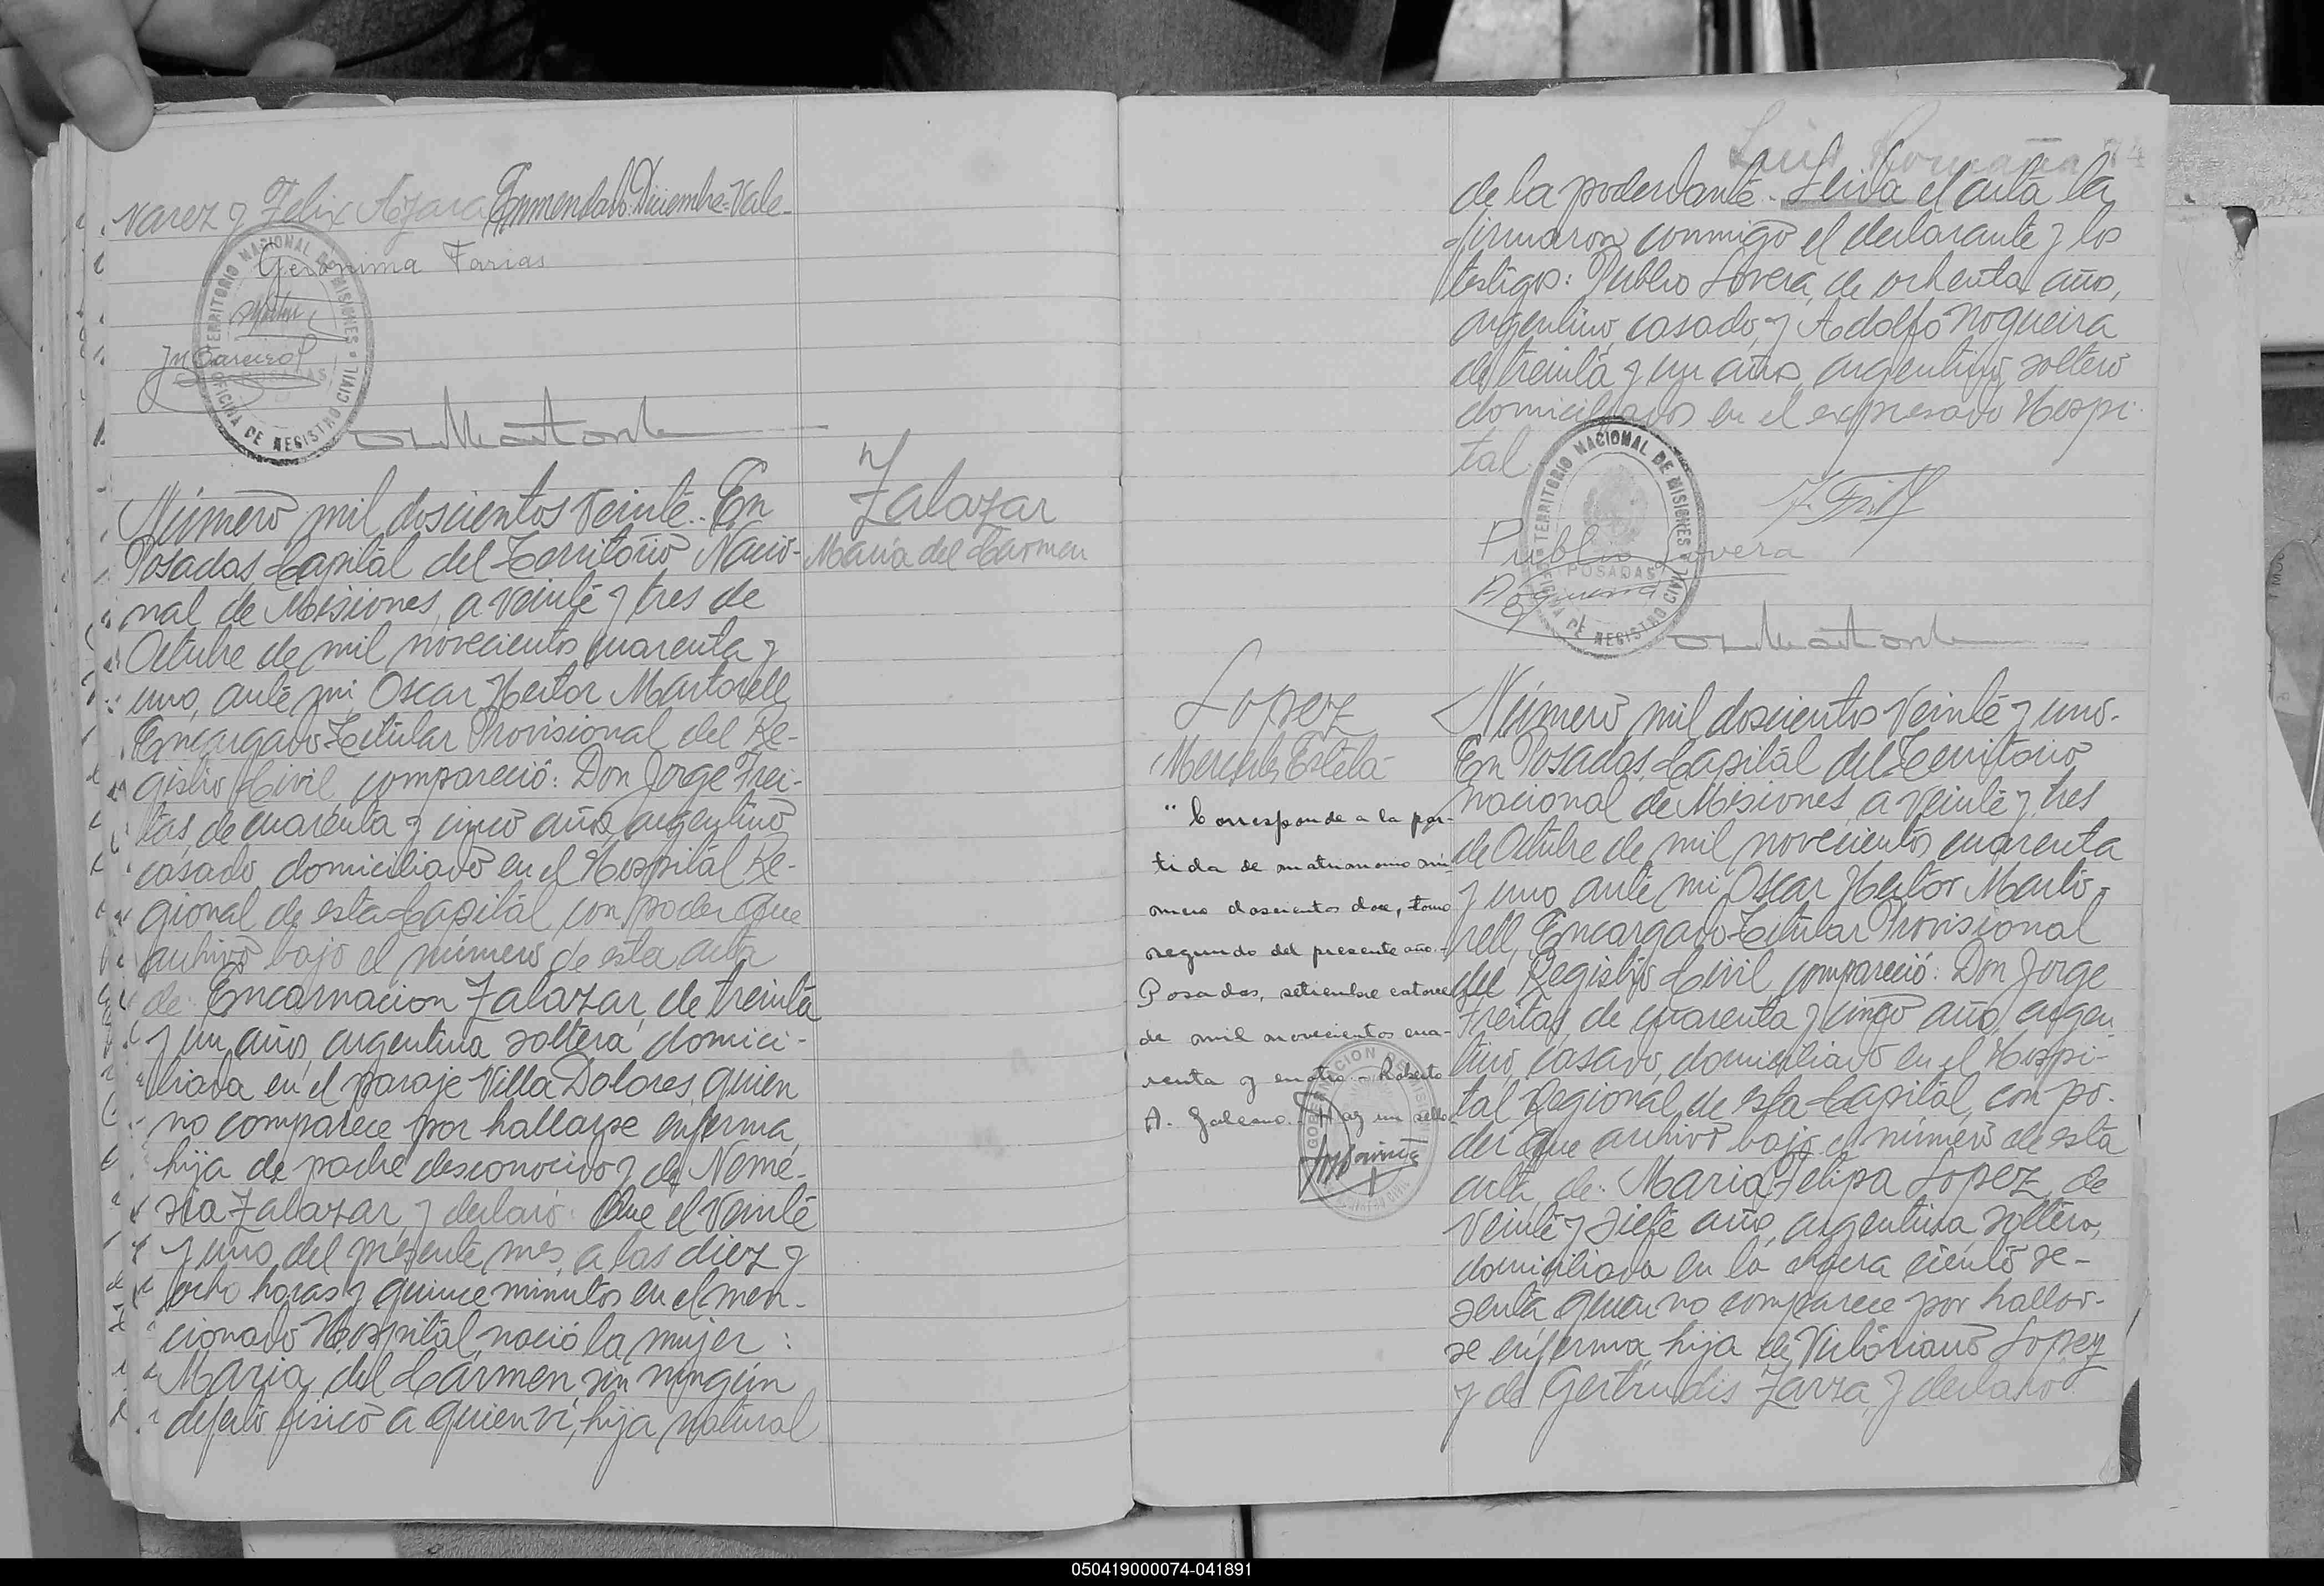 varez y Felix Azara Enmendado: Diciembre: Vale-
Gerónima Farias
TERRITORIO NACIONAL DE MISIONES
POSADAS
OFICINA DE REGISTRO CIVIL
Zalazar
María del Carmen
Número mil doscientos veinte. En
Posadas, Capital del Territorio Nacio-
nal de Misiones, a veinte y tres de
Octubre de mil novecientos cuarenta y
uno, ante mi Oscar Hector Martorell
Encargado Titular Provisional del Re-
gistro Civil, compareció: Don Jorge Frei-
tas, de cuarenta y cinco años, argentino
casado domiciliado en el Hospital Re-
gional de esta Capital, con poder que
archivo bajo el número de esta acta
de: Encarnacion Zalazar, de treinta
y un años, argentina soltera domici-
liada en el paraje Villa Dolores, quien
no comparece por hallarse enferma,
hija de padre desconocido y de Neme-
sia Zalazar, y declaró: Que el veinte
y uno del presente mes, a las diez y
ocho horas y quince minutos en el men-
cionado Hospital, nació la mujer:
María del Carmen, sin ningún
defecto físico a quien ví, hija natural
Luis Romaña 74
de la poderdante. Leída el acta la
firmaron conmigo el declarante y los
testigos: Publio Lovera, de ochenta años,
argentino, casado, y Adolfo Nogueira
de treinta y un años, argentino, soltero
domiciliados en el expresado Hospi-
tal.
TERRITORIO NACIONAL DE MISIONES
POSADAS
OFICINA DE REGISTRO CIVIL
Publio Lovera
Lopez
Mercedes Estela
"Corresponde a la par-
tida de matrimonio nú-
mero doscientos doce, tomo
segundo del presente año.-
Posadas, setiembre catorce
de mil novecientos cua-
renta y cuatro.- Roberto
A. Galeano.- Hay un sello
Número mil doscientos veinte y uno.
En Posadas, Capital del Territorio
nacional de Misiones, a veinte y tres
de Octubre de mil novecientos cuarenta
y uno, ante mi Oscar Hector Marto-
rell, Encargado Titular Provisional
del Registro Civil, compareció: Don Jorge
Freitas, de cuarenta y cinco años, argen
tino, casado, domiciliado en el Hospi-
tal Regional, de esta Capital, con po-
der que archivo bajo el número de esta
acta, de: María Felipa Lopez, de
veinte y siete años, argentina, soltera,
domiciliada en la chacra ciento se-
senta, quien no comparece por hallar-
se enferma, hija de Victoriano Lopez
y de Gertrudis Zarza, y declaró:
050419000074-041891